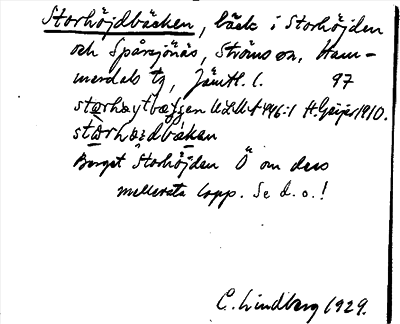 Storhöjdbäcken, bäck i Storhöjden
och Spårsjönäs, Ströms sn, Ham-
merdals tg, Jämtl. l. 97
ULMA 446:1 H. Geijer 1910.
Berget Storhöjden Ö om dess
mellersta lopp. Se d. o.!
C. Lindberg 1929.